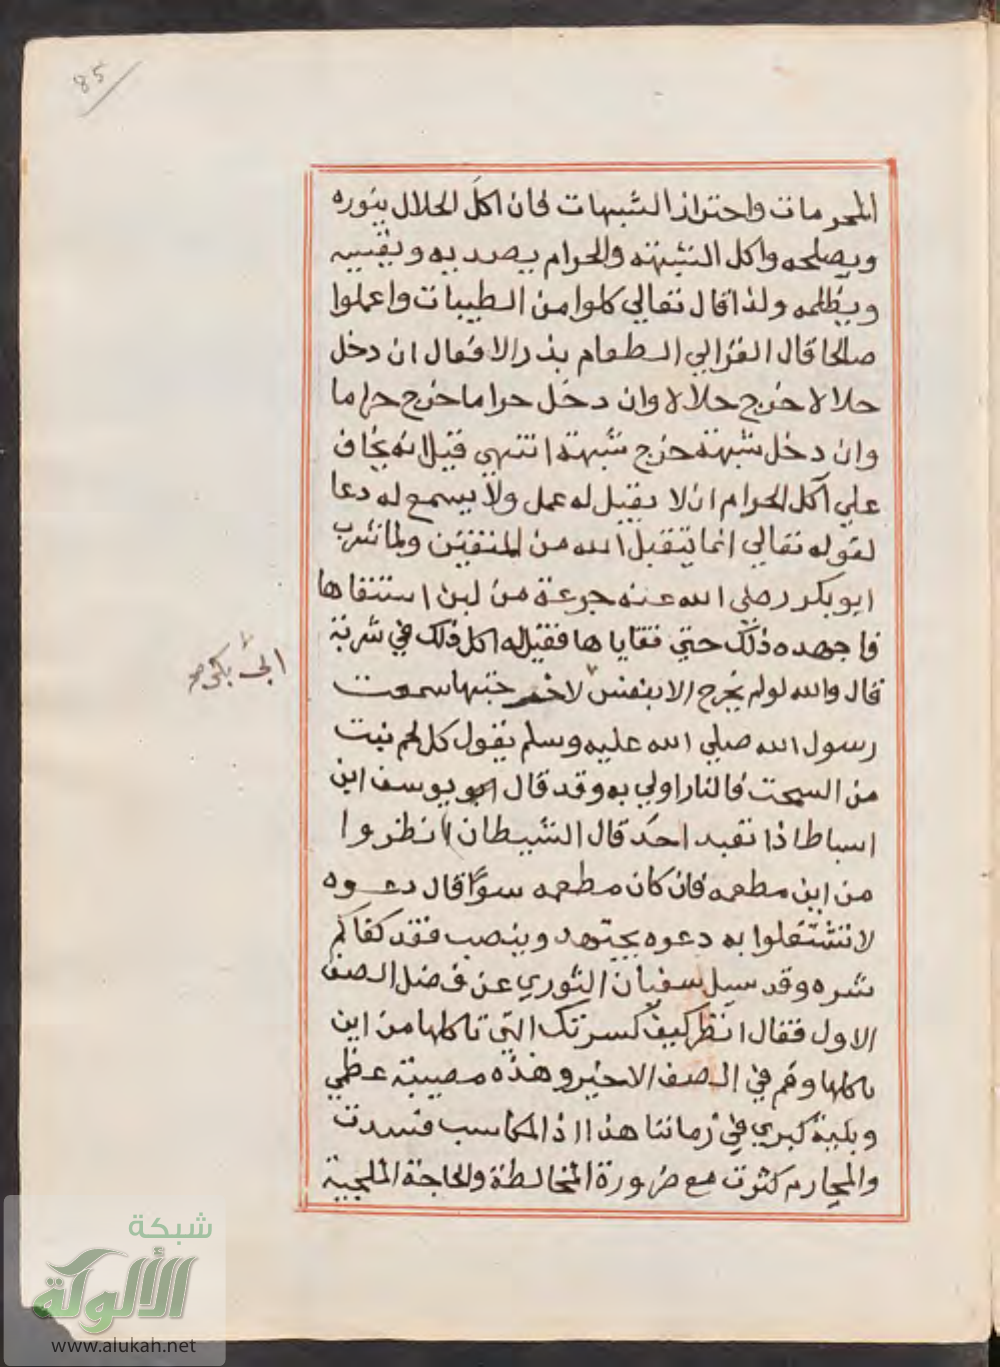 85
المحرمات واحتراز الشبهات فان اكل الحلال ينوره
ويصلحه واكل الشبهة والحرام يصديه ويقسيه
ويظلمه ولذا قال تعالي كلوا من الطيبات واعملوا
صالحا قال الغزالي الطعام بذر الافعال ان دخل
حلالا خرج حلالا وان دخل حراما خرج حراما
وان دخل شبهة خرج شبهة انتهي قيل انه يخاف
علي آكل الحرام ان لا يقبل له عمل ولا يسمع له دعا
لقوله تعالي انما يتقبل الله من المتقين ولما شرب
ابو بكر رضي الله عنه جرعة من لبن استقاها
فاجهده ذلك حتي تقاياها فقيل له اكل ذلك في شربة
قال والله لو لم يخرج الا بنفس لاخرجتها سمعت
رسول الله صلي الله عليه وسلم يقول كل لحم نبت
من السحت فالنار اولي به وقد قال ابو يوسف ابن
اسباط اذا تعبد احد قال الشيطان انظروا
من اين مطعمه فان كان مطعمه سوأ قال دعوه
لا تشتغلوا به دعوه يجتهد وينصب فقد كفاكم
شره وقد سيل سفيان الثوري عن فضل الصف
الاول فقال انظر كيف كسرتك التي تاكلها من اين
تاكلها وقم في الصف الاخير وهذه مصيبة عظمي
وبلية كبري في زماننا هذا اذ المكاسب فسدت
والمحارم كثرت مع ضرورة المخالطة والحاجة الملجية
شبكة
الألوكة
www.alukah.net